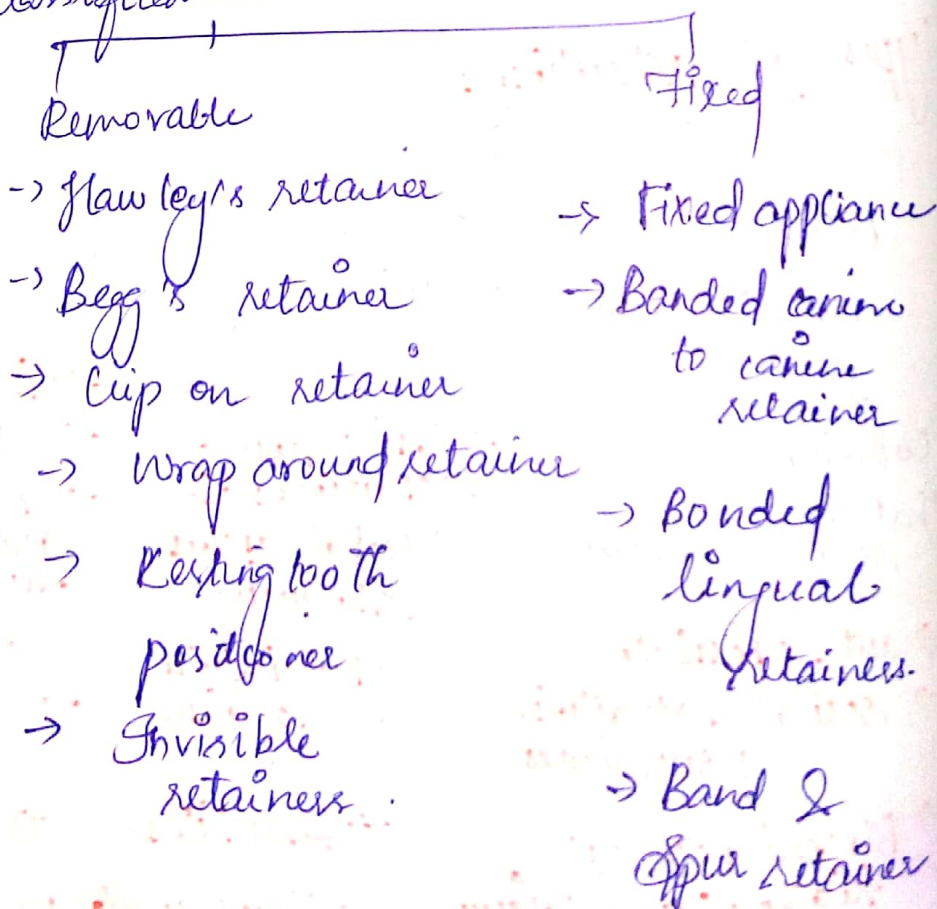 Removable
-> Hawley's retainer
-> Begg's retainer
-> Clip on retainer
-> Wrap around retainer
-> tooth
positioner
-> Invisible
retainers.
Fixed
-> Fixed appliance
-> Banded canine
to canine
retainer
-> Bonded
lingual
retainers.
-> Band &
Spur retainer